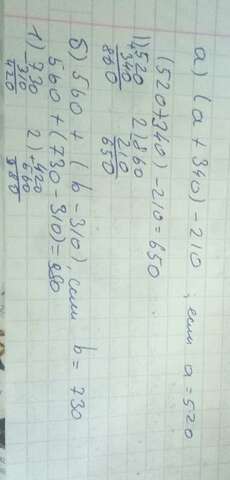 а) (а + 340) - 210, если а = 520
(520+340) - 210 = 650
1) 520 2) 860
+340 210
860 650
б) 560 + (b - 310), если b = 730
560 + (730 - 310) = 980
1) 730 2) 420
- 310 + 560
420 980